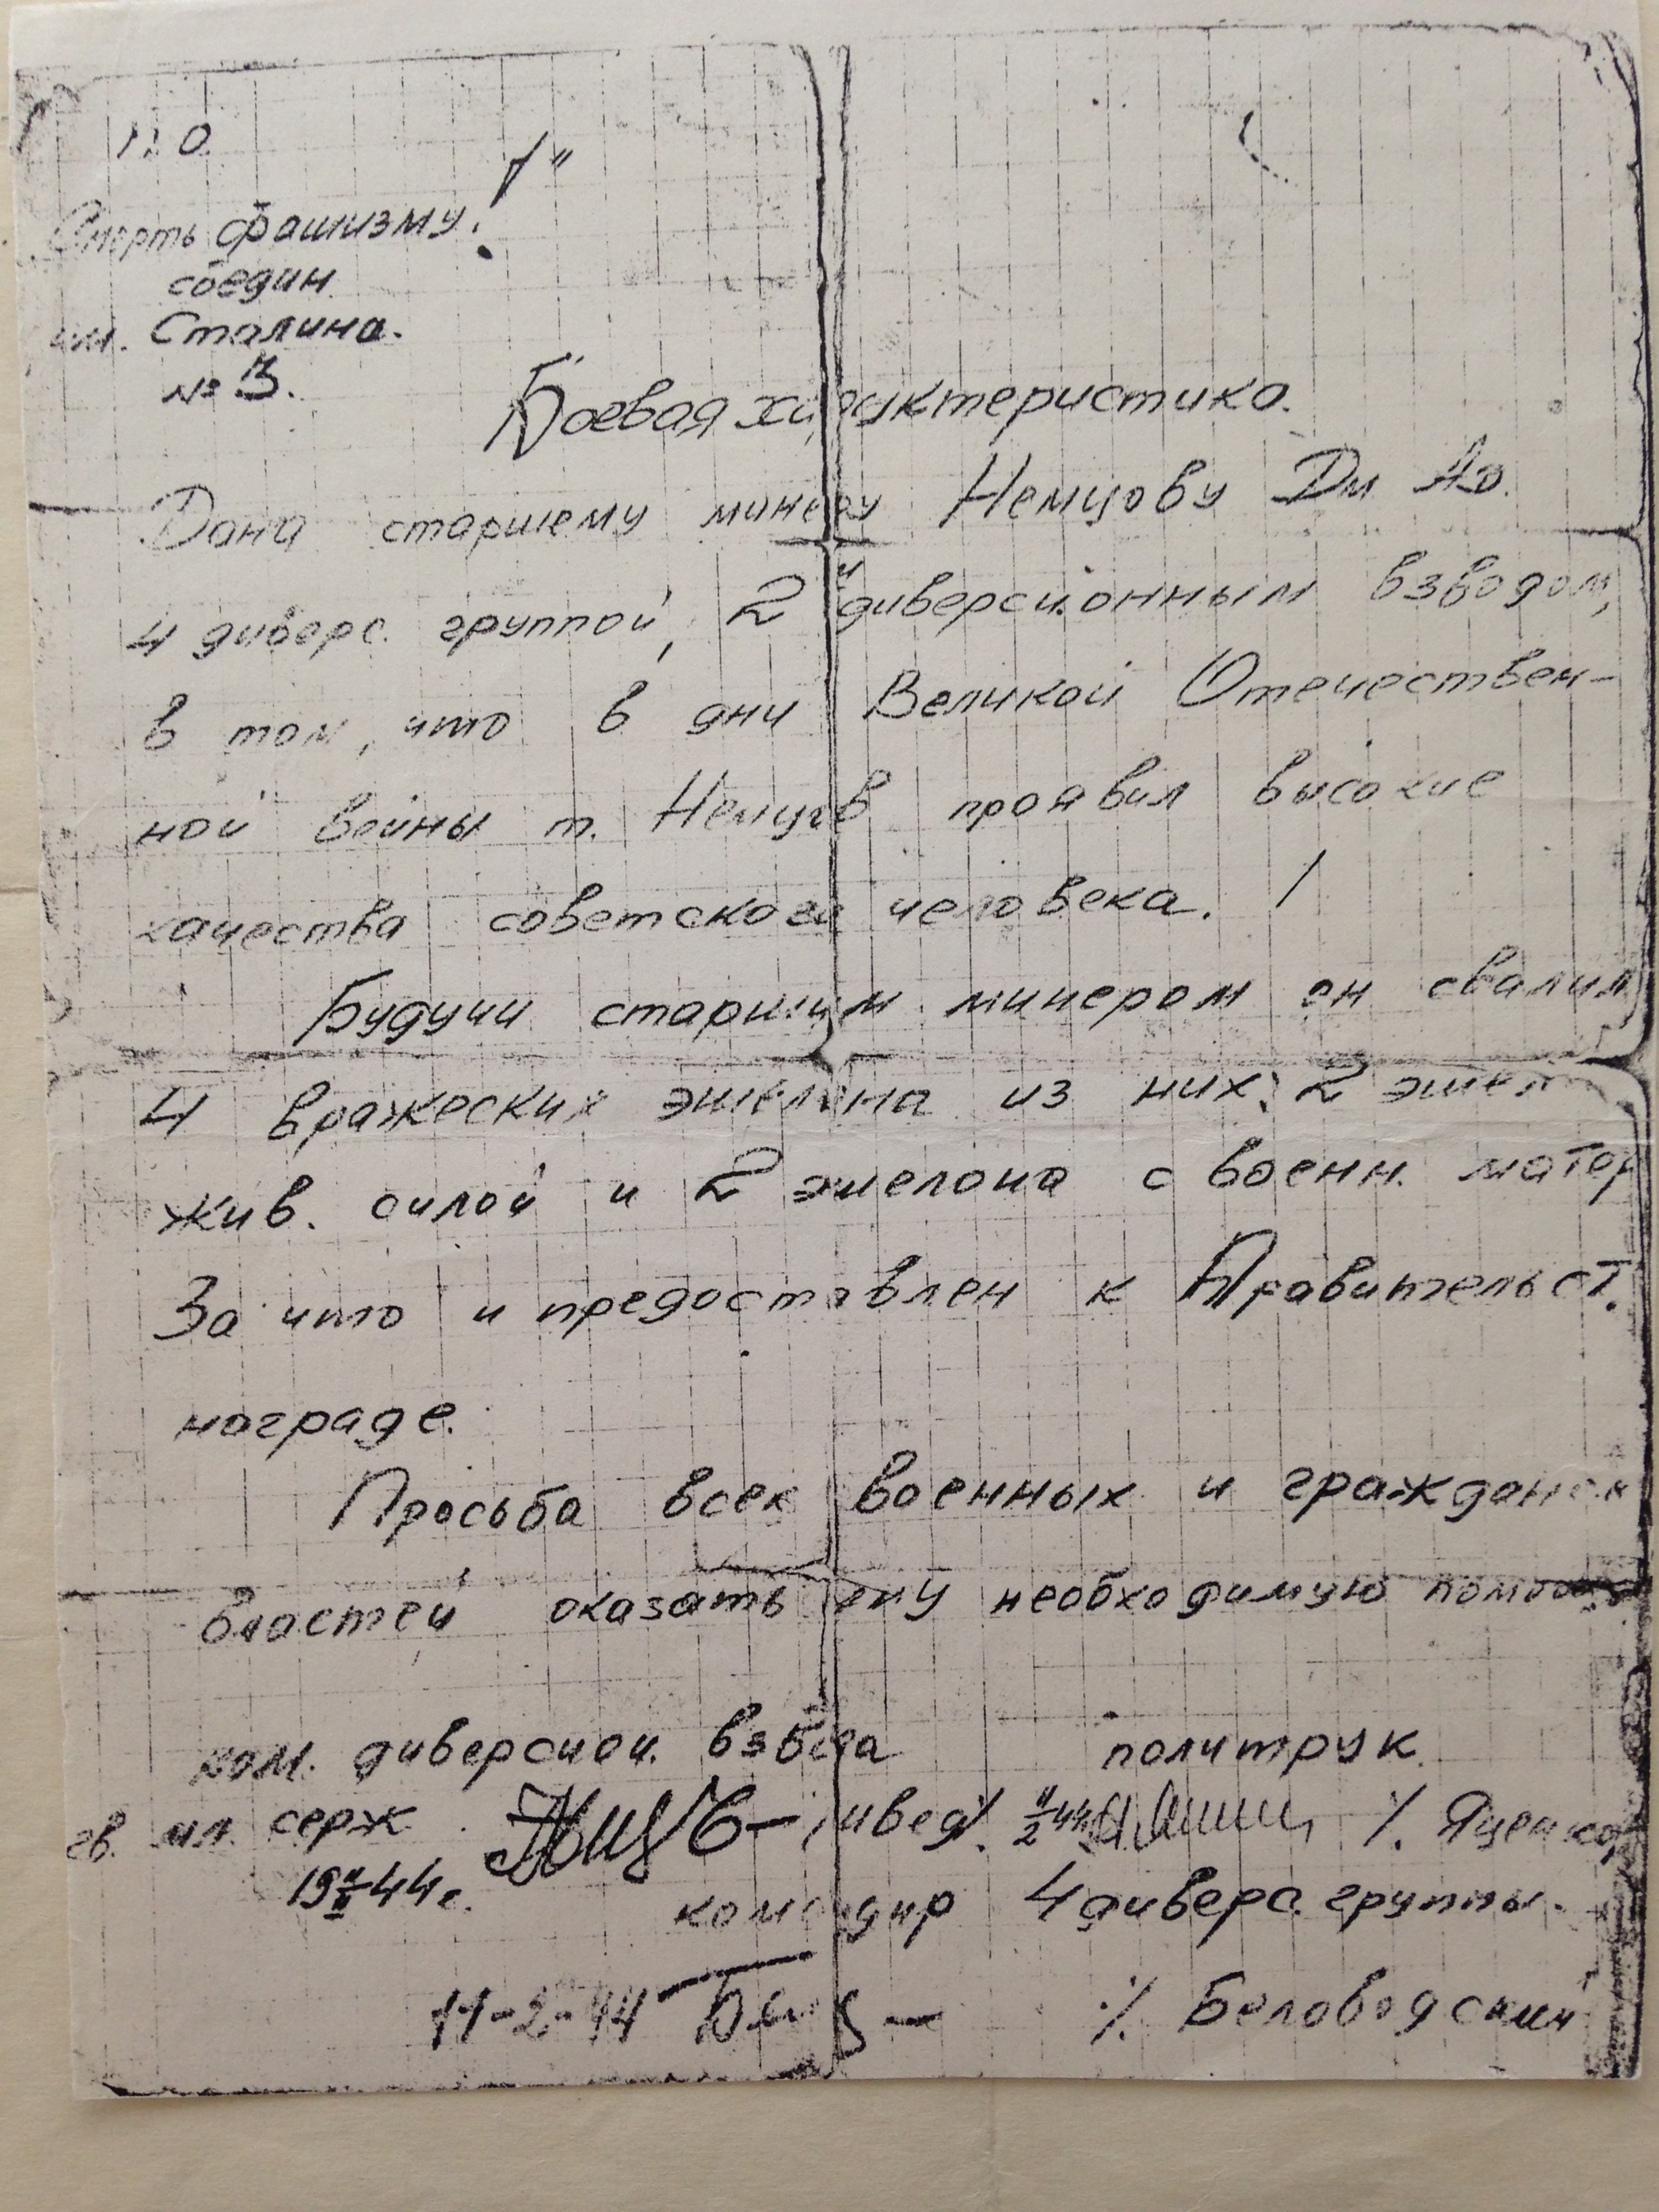 п. о.
Смерть фашизму!
соедин.
им. Сталина.
№ 3.
Боевая характеристика.
Дана старшему минеру Немцову Дм.
4 диверс. группой, 2й диверсионным взводом,
в том, что в дни Великой Отечествен-
ной войны т. Немцов проявил высокие
качества советского человека.
Будучи старшим минером он свалил
4 вражеских эшелона из них: 2 эшел
жив. силой и 2 эшелона с военн. матер
За что и предоставлен к Правительст.
награде.
Просьба всех военных и граждански
властей оказать ему необходимую помощь
ком. диверсион. взвода политрук
гв. мл. серж /. Яценко
19 II 44 г.
командир 4 диверс. группы.
11-2-44 /. Беловодский